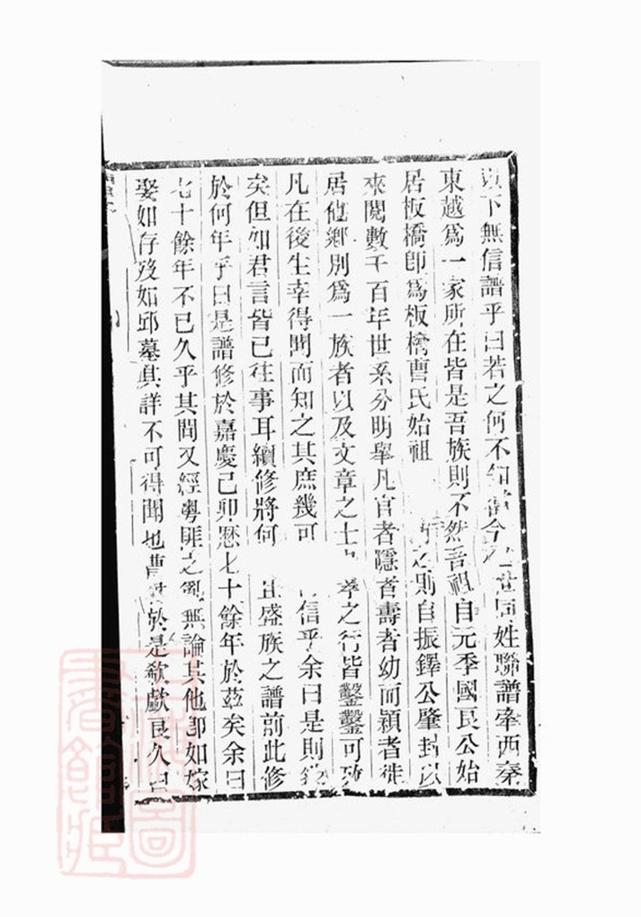 下無信譜乎曰若之何不知當今之同姓聯譜牽西秦
東越爲一家所在皆是吾族則不然吾祖自元季國良公始
居板橋卽爲板橋曹氏始祖之則自振鐸公肇封以
來閱數千百年世系分明舉凡官者隱者壽者幼而穎者徙
居他鄉別爲一族者以及文章之士之行皆鑿鑿可
凡在後生幸得聞而知之其庶幾可信乎余曰是則
矣但如君言皆已往事耳續修將何且盛族之譜前此修
於何年乎曰是譜修於嘉慶己卯歷七十餘年於茲矣余曰
七十餘年不已久乎其間又經粵匪之亂無論其他卽如嫁
娶如存歿如邱墓其詳不可得聞也曹於是欷歔良久曰